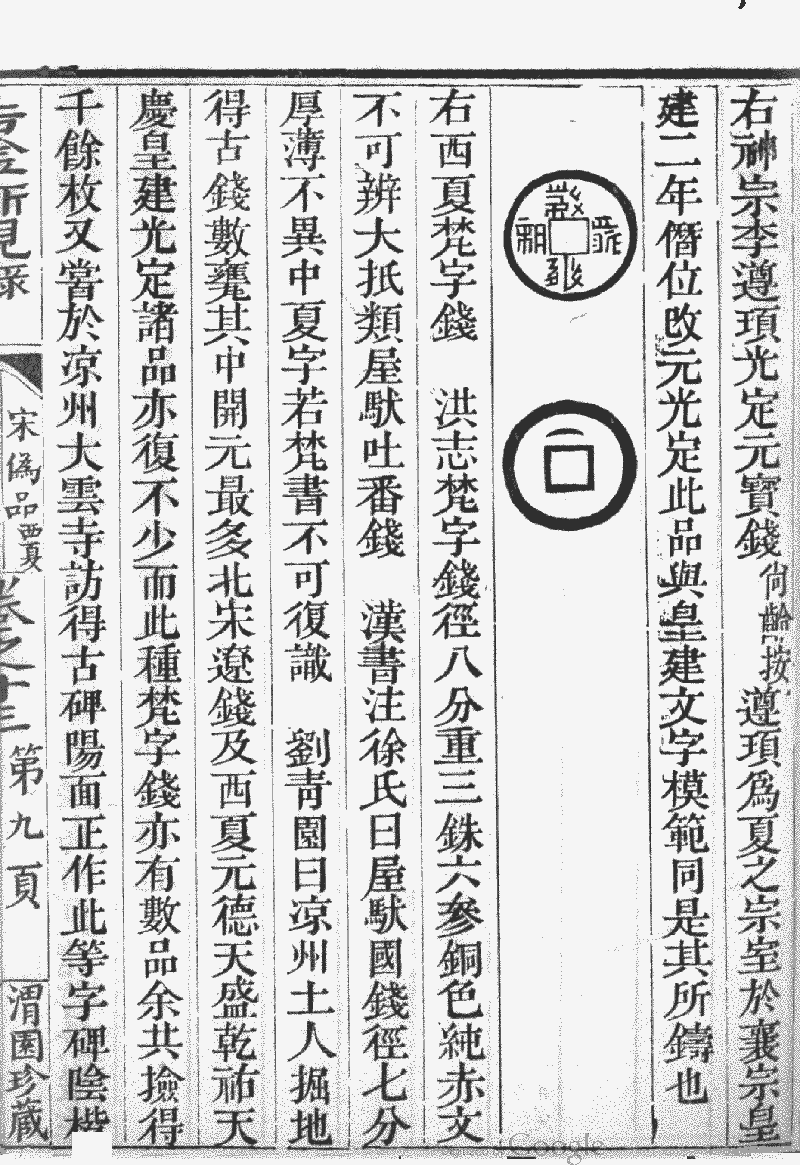 右神宗李遵頊光定元寶錢尙齡按遵頊爲夏之宗室於襄宗皇
建二年僭位改元光定此品與皇建文字模範同是其所鑄也
右西夏梵字錢 洪志梵字錢徑八分重三銖六參銅色純赤文
不可辨大扺類屋馱吐番錢 漢書注徐氏曰屋馱國錢徑七分
厚薄不異中夏字若梵書不可復識 劉靑園曰凉州土人掘地
得古錢數甕其中開元最多北宋遼錢及西夏元德天盛乾祐天
慶皇建光定諸品亦復不少而此種梵字錢亦有數品余共撿得
千餘枚又嘗於凉州大雲寺訪得古碑陽面正作此等字碑陰楷
吉金所見錄
宋僞品西夏
卷之十三
第九頁
渭園珍藏
Google